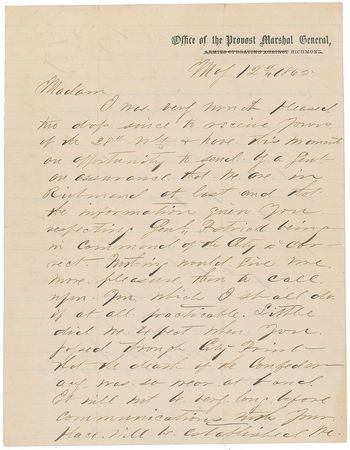 Office of the Provost Marshal General,
ARMIES OPERATING AGAINST RICHMOND,
May 12th, 1865.
Madam
I was very much pleased
two days since to receive yours
of the 28th ult & have this moment
an opportunity to send by a
an assurance that we are in
Richmond at last and that
the information given you
respecting Genl Patrick being
in command of the City is cor-
rect. Nothing would give me
more pleasure than to call
upon you which I shall do
if at all practicable. Little
did we expect when you
passed through City Point
that the death of the Confeder-
acy was so near at hand
It will not be very long before
communications with your
place will be established We